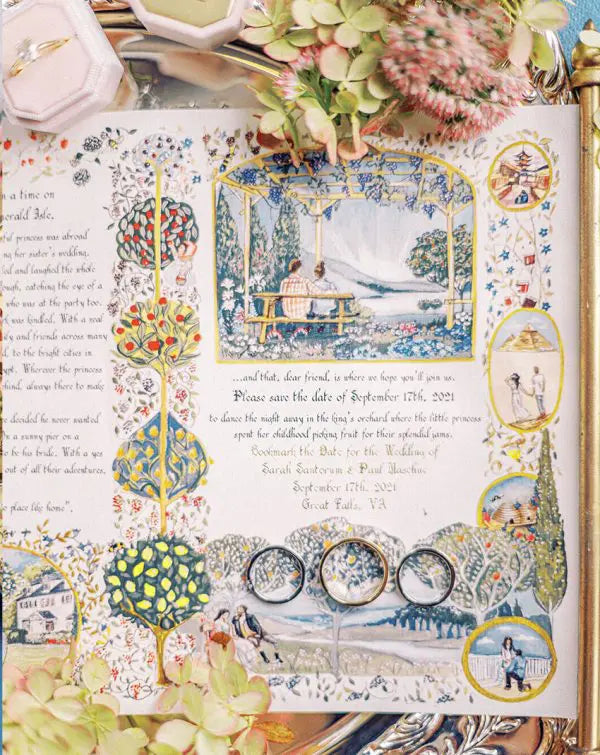 a time on
erald Isle,
princess was abroad
ng her sister's wedding,
led and laughed the whole
ough, catching the eye of a
who was at the party too.
k was kindled. With a real
and friends across many
d, to the bright cities in
ypt. Wherever the princess
hind, always there to make
e decided he never wanted
n a sunny pier on a
o be his bride. With a yes
out of all their adventures,
o place like home",
...and that, dear friend, is where we hope you'll join us.
Please save the date of September 17th, 2021
to dance the night away in the king's orchard where the little princess
spent her childhood picking fruit for their splendid jams.
Bookmark the Date for the Wedding of
Sarah Santorum & Paul
September 17th, 2021
Great Falls, VA